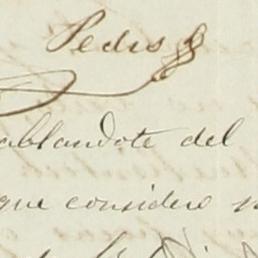 Pedro
ablandote del
que considero